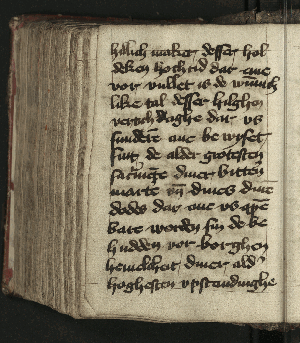 hilich maket desser hol
deken hochtid dar ane
vor vullet is de wunnich
like tal desser hilghen
vertich daghe dar us
sundere ane bewyset
sint de alder grotesten
diner bittern
marte vn dines
dodes dar ane us apen
bare worden sin de be
hudden vor borghen
hemelcheit diner ald
hoghesten upstandinghe